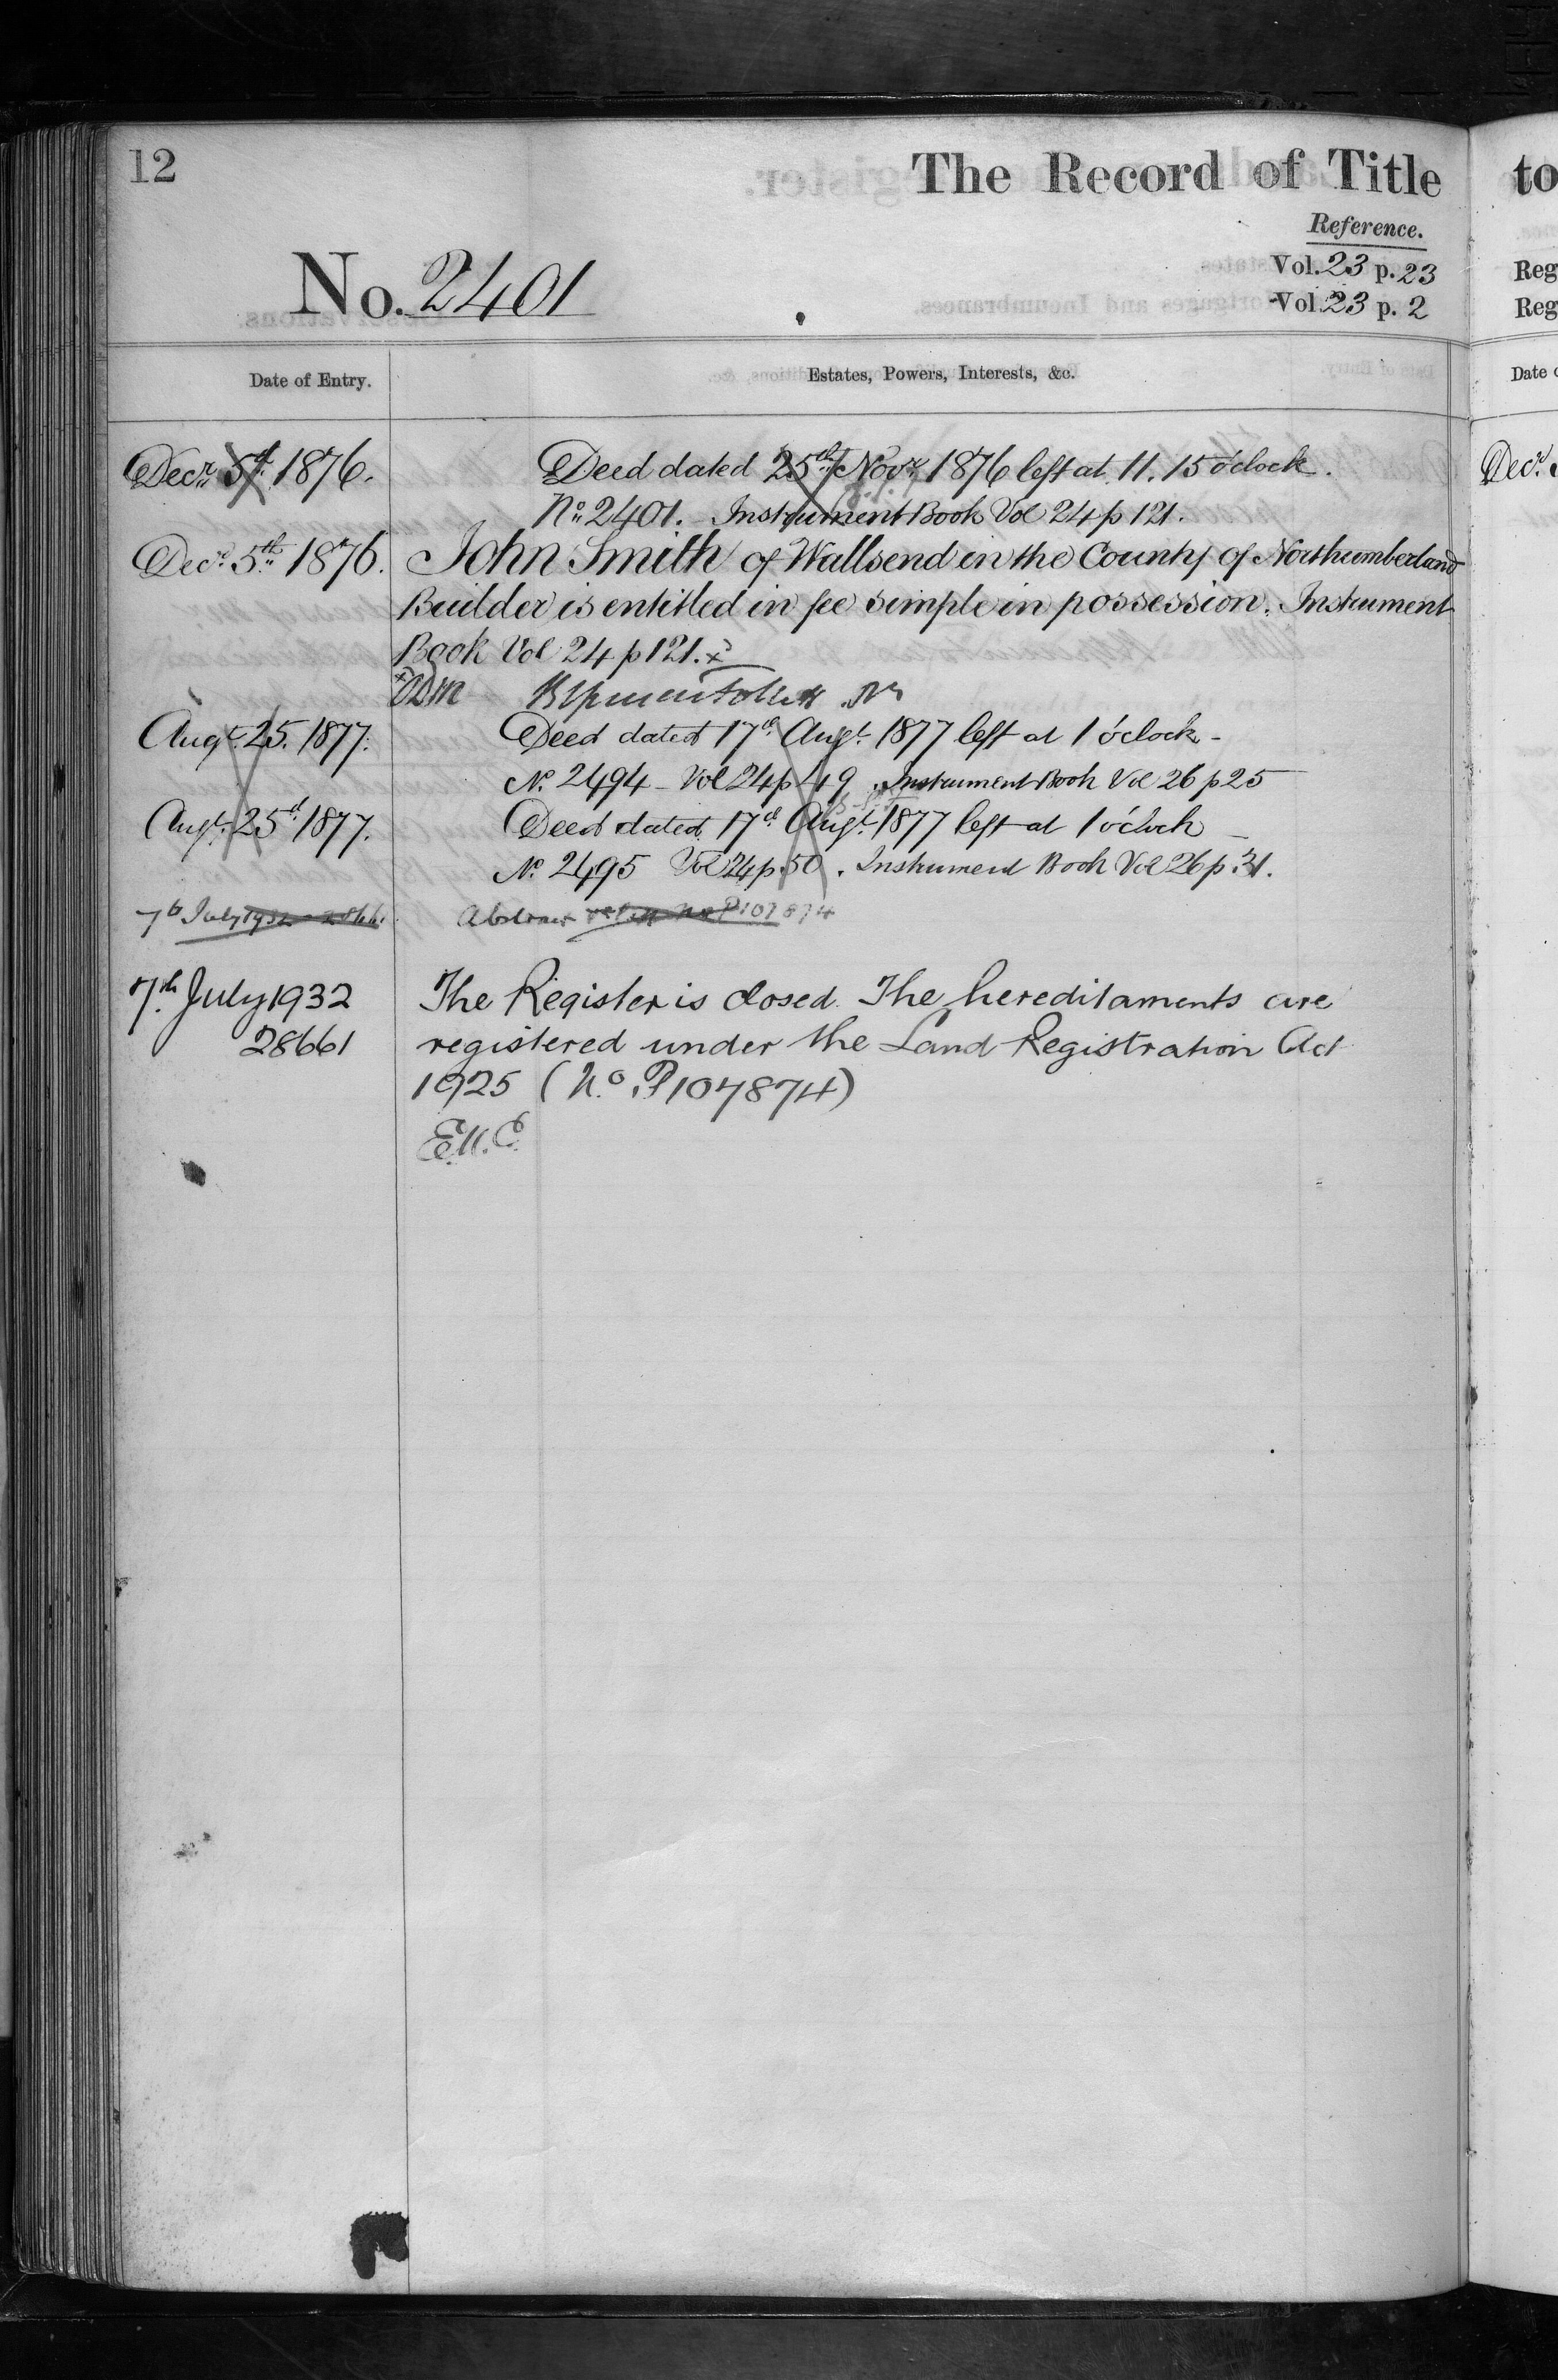 12
The Record of Title
to
Reference.
No. 2401
Vol. 23 p. 23
Reg
Vol 23 p. 2
Reg
Date of Entry.
Estates, Powers, Interests, &c.
Date
Decr. 5th. 1876.
Deed dated 25th. Novr. 1876 left at 11.15 o'clock.
Decr.
No. 2401. Instrument Book Vol 24 p 121.
Decr. 5th. 1876.
John Smith of Wallsend in the County of Northumberland
Builder is entitled in fee simple in possession. Instrument
Book Vol 24 p 121. x
x
Augt. 25. 1877.
Deed dated 17th Augt. 1877 left at 1 o'clock -
No. 2494 - Vol 24 p 49. Instrument Book Vol 26 p 25
Augt. 25th. 1877.
Deed dated 17th Augt. 1877 left at 1 o'clock -
No. 2495 Vol 24 p. 50. Instrument Book Vol 26 p. 31.
7th July 1932 28661
Abstract No P107874
7th. July 1932
28661
The Register is closed. The hereditaments are
registered under the Land Registration Act
1925 (No. P107874)